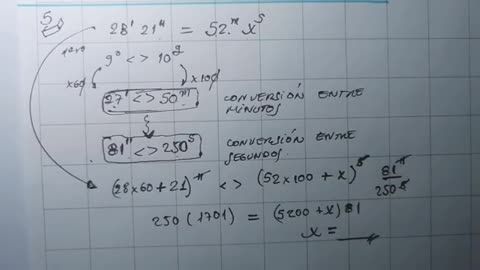 5
28' 21'' = 52ᵐ xˢ
9° <> 10ᵍ
x60 x100
27' <> 50ᵐ CONVERSIÓN ENTRE
MINUTOS
81'' <> 250ˢ CONVERSIÓN ENTRE
SEGUNDOS.
(28x60 + 21)'' <> (52x100 + x)ˢ 81''/250ˢ
250 (1701) = (5200 + x) 81
x =